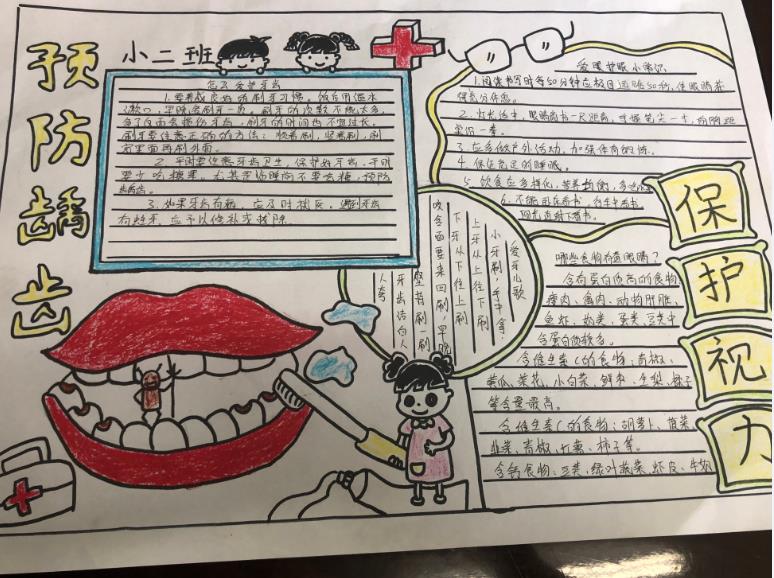 预防龋齿
小二班
怎么爱护牙齿
1.要养成良好的刷牙习惯。饭后用温水
漱口，早晚各刷牙一次。刷牙的次数不能太多，
多了反而会损伤牙齿，刷牙的时间也不易过长。
刷牙要注意正确的方法：顺着刷，竖着刷，刷
完里面再刷外面。
2.平时要注意牙齿卫生，保护好牙齿，平时
要少吃糖果。尤其是临睡前不要吃糖，预防
龋齿。
3.如果牙齿有病，应及时拔
有蛀牙，应予以修补或拔除。
爱牙儿歌
小牙刷，手中拿，
上牙从上往下刷
下牙从下往上刷
咬合面要来回刷，早晚
坚持刷一刷
牙齿洁白人
人夸
爱眼护眼小常识
1.阅读书写时每50分钟应极目远眺10秒，使眼睛获
得充分休息。
2.灯光适中，眼睛离书一尺距离，手握笔尖一寸，胸离
桌沿一拳。
3.应多做户外活动，加强体育锻炼。
4.保证充足的睡眠。
5.饮食应多样化，营养均衡，多
6.不能
哪些食物有益眼睛？
含有蛋白质高的食物，
瘦肉、禽肉、动物肝脏、
鱼虾、奶类、蛋类、豆类中
含蛋白质较多。
含维生素C的食物：青椒、
黄瓜、菜花、小白菜、鲜枣、生梨、橘子
等含量最高。
含维生素 的食物：胡萝卜、苋菜、
韭菜、青椒、红薯、柿子等。
含钙食物：豆类、绿叶蔬菜、虾皮、牛奶
保护视力